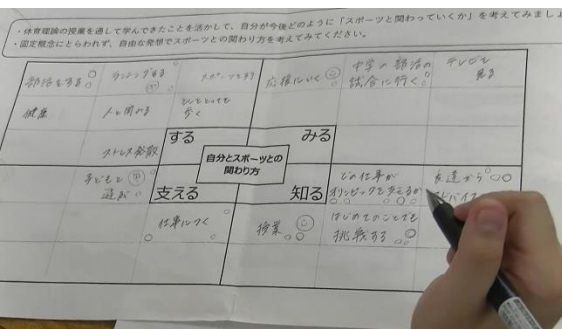 ・体育理論の授業を通して学んできたことを活かして、自分が今後どのように「スポーツと関わっていくか」を考えてみましょ
・固定概念にとらわれず、自由な発想でスポーツとの関わり方を考えてみてください。
部活をする
ランニングする
スポーツをする
応援にいく
中学の部活の
試合に行く
テレビで
見る
健康
人と関わる
歩く
ストレス発散
する
みる
自分とスポーツとの
関わり方
支える
知る
子どもと
遊ぶ
仕事につく
どの仕事が
オリンピックを支えるか
友達から
アドバイス
授業
はじめてのことでも
挑戦する